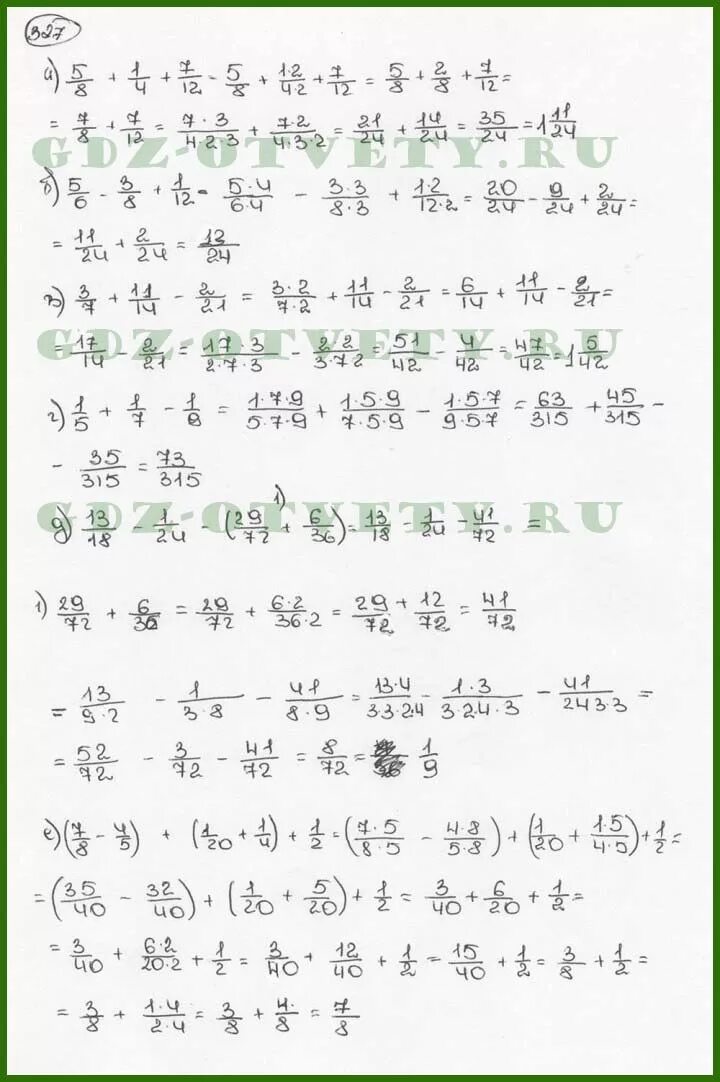 327
а) 5/8 + 1/4 + 7/12 - 5/8 + 1·2/4·2 + 7/12 = 5/8 + 2/8 + 7/12 =
= 7/8 + 7/12 = 7·3/4·2·3 + 7·2/4·3·2 = 21/24 + 14/24 = 35/24 = 1 11/24
GDZ-OTVETY.RU
б) 5/6 - 3/8 + 1/12 = 5·4/6·4 - 3·3/8·3 + 1·2/12·2 = 20/24 - 9/24 + 2/24 =
= 11/24 + 2/24 = 13/24
в) 3/7 + 11/14 - 2/21 = 3·2/7·2 + 11/14 - 2/21 = 6/14 + 11/14 - 2/21 =
GDZ-OTVETY.RU
= 17/14 - 2/21 = 17·3/2·7·3 - 2·2/3·7·2 = 51/42 - 4/42 = 47/42 = 1 5/42
г) 1/5 + 1/7 - 1/9 = 1·7·9/5·7·9 + 1·5·9/7·5·9 - 1·5·7/9·5·7 = 63/315 + 45/315 -
- 35/315 = 73/315
GDZ-OTVETY.RU
1)
д) 13/18 - 1/24 - (29/72 + 6/36) = 13/18 - 1/24 - 41/72 =
1) 29/72 + 6/36 = 29/72 + 6·2/36·2 = 29/72 + 12/72 = 41/72
= 13/9·2 - 1/3·8 - 41/8·9 = 13·4/3·3·2·4 - 1·3/3·2·4·3 - 41/243·3 =
= 52/72 - 3/72 - 41/72 = 8/72 = 1/9
е) (7/8 - 4/5) + (1/20 + 1/4) + 1/2 = (7·5/8·5 - 4·8/5·8) + (1/20 + 1·5/4·5) + 1/2 =
= (35/40 - 32/40) + (1/20 + 5/20) + 1/2 = 3/40 + 6/20 + 1/2 =
= 3/40 + 6·2/20·2 + 1/2 = 3/40 + 12/40 + 1/2 = 15/40 + 1/2 = 3/8 + 1/2 =
= 3/8 + 1·4/2·4 = 3/8 + 4/8 = 7/8